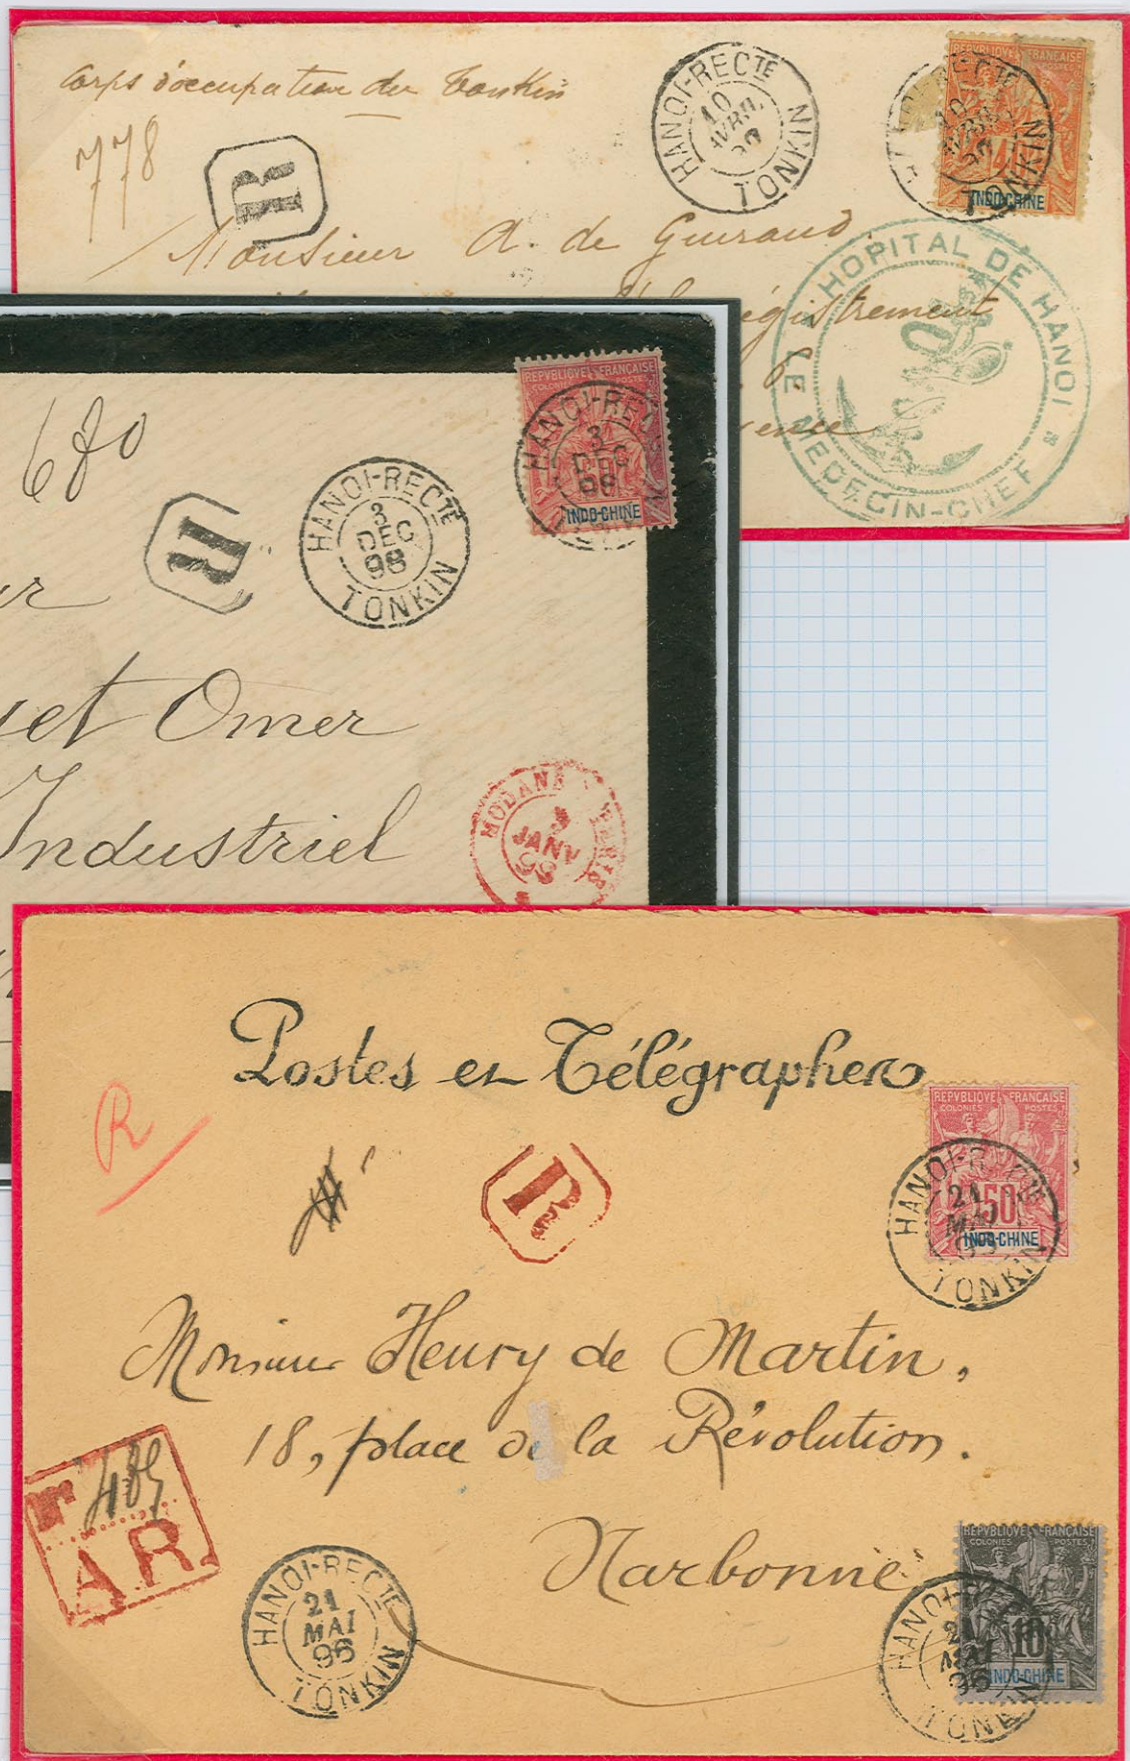 Corps d'occupation du Tonkin
778
R
HANOI-RECTE
10
AVRIL
TONKIN
REPVBLIQVE FRANÇAISE
INDO-CHINE
10
TONKIN
Monsieur A. de Guiraud
égistrement
HOPITAL DE HANOI
LE MEDECIN-CHEF
680
R
HANOI-RECTE
3
DEC
98
TONKIN
REPVBLIQVE FRANÇAISE
COLONIES POSTES
INDO-CHINE
HANOI-RECTE
3
DEC
98
et Omer
Industriel
MODANE
JANV
Postes et Télégraphes
R
R
REPVBLIQVE FRANÇAISE
COLONIES POSTES
50
INDO-CHINE
HANOI-R
21
MAI
TONKIN
Monsieur Henry de Martin,
18, place de la Révolution.
Narbonne
485
AR
HANOI-RECTE
21
MAI
96
TONKIN
REPVBLIQVE FRANÇAISE
COLONIES POSTES
10
INDO-CHINE
HANOI-R
21
MAI
96
TONKIN